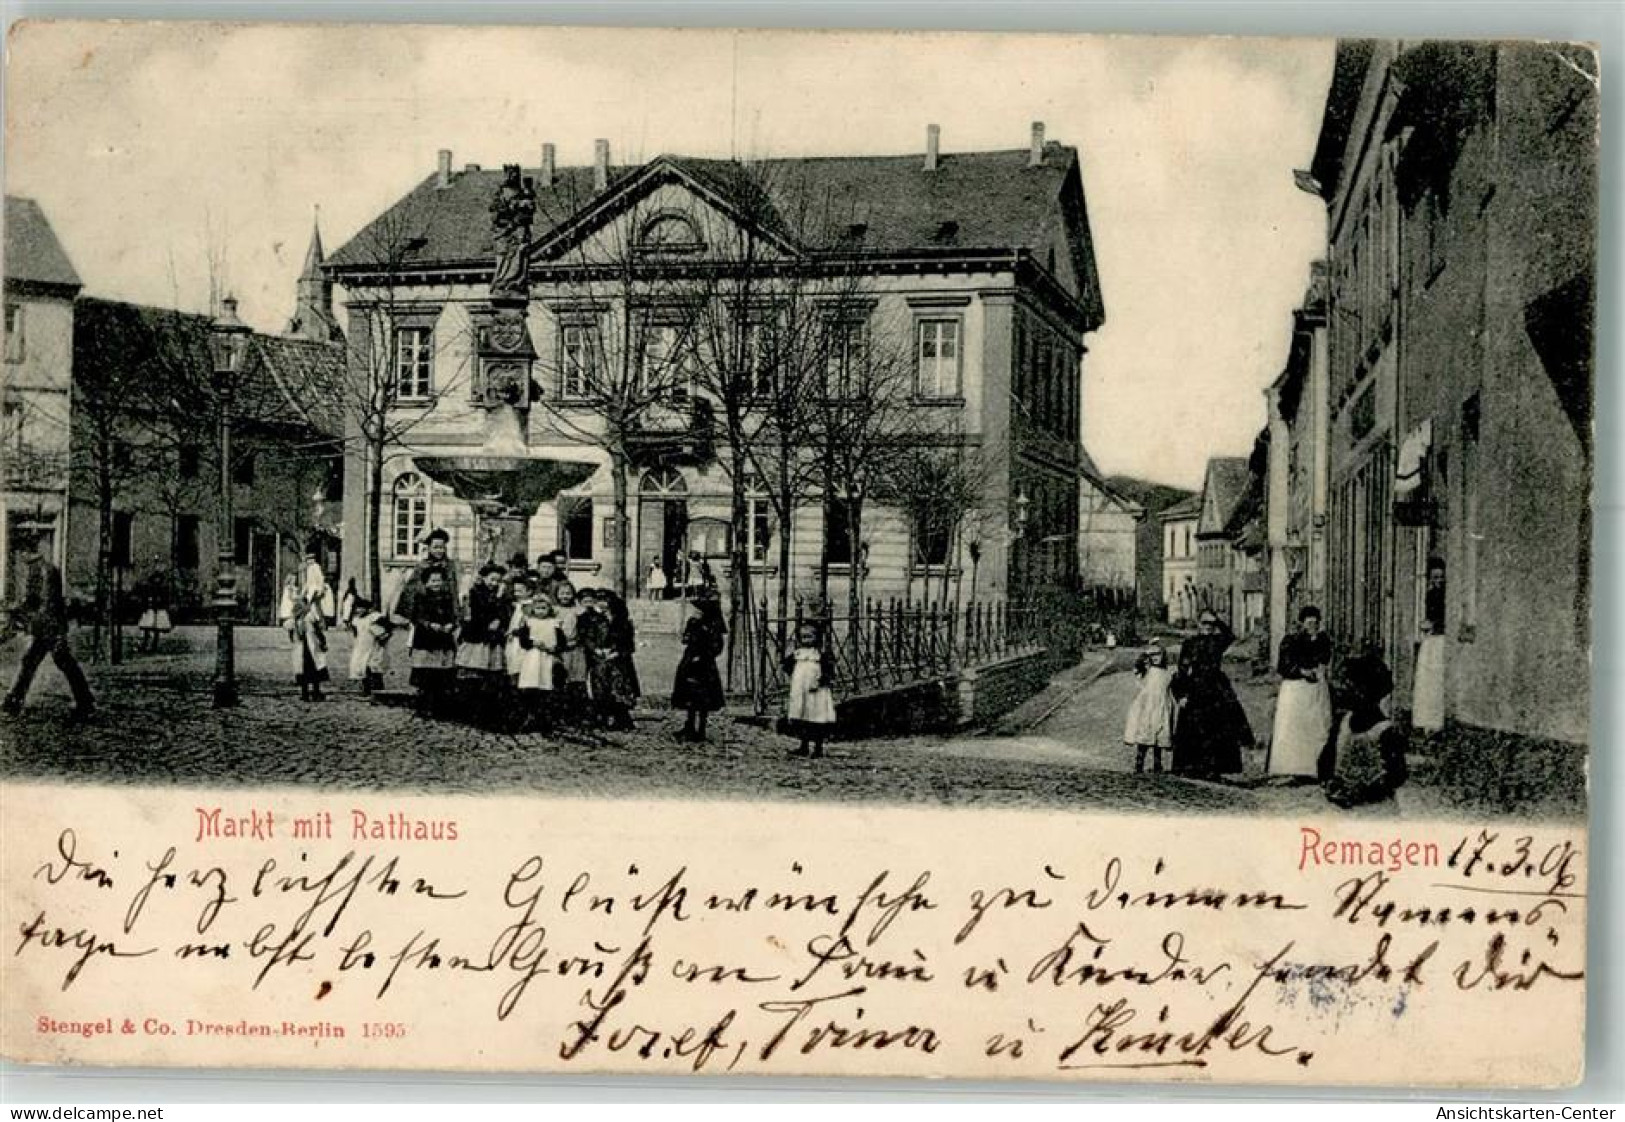 Markt mit Rathaus
Remagen 17.3.06
Die herzlichsten Glückwünsche zu Deinem Namens
tage nebst besten Gruß an Frau u Kinder sendet Dir
Josef, Trina u Kinder.
Stengel & Co. Dresden-Berlin 1595
delcampe.net/store/akc
Ansichtskarten-Center